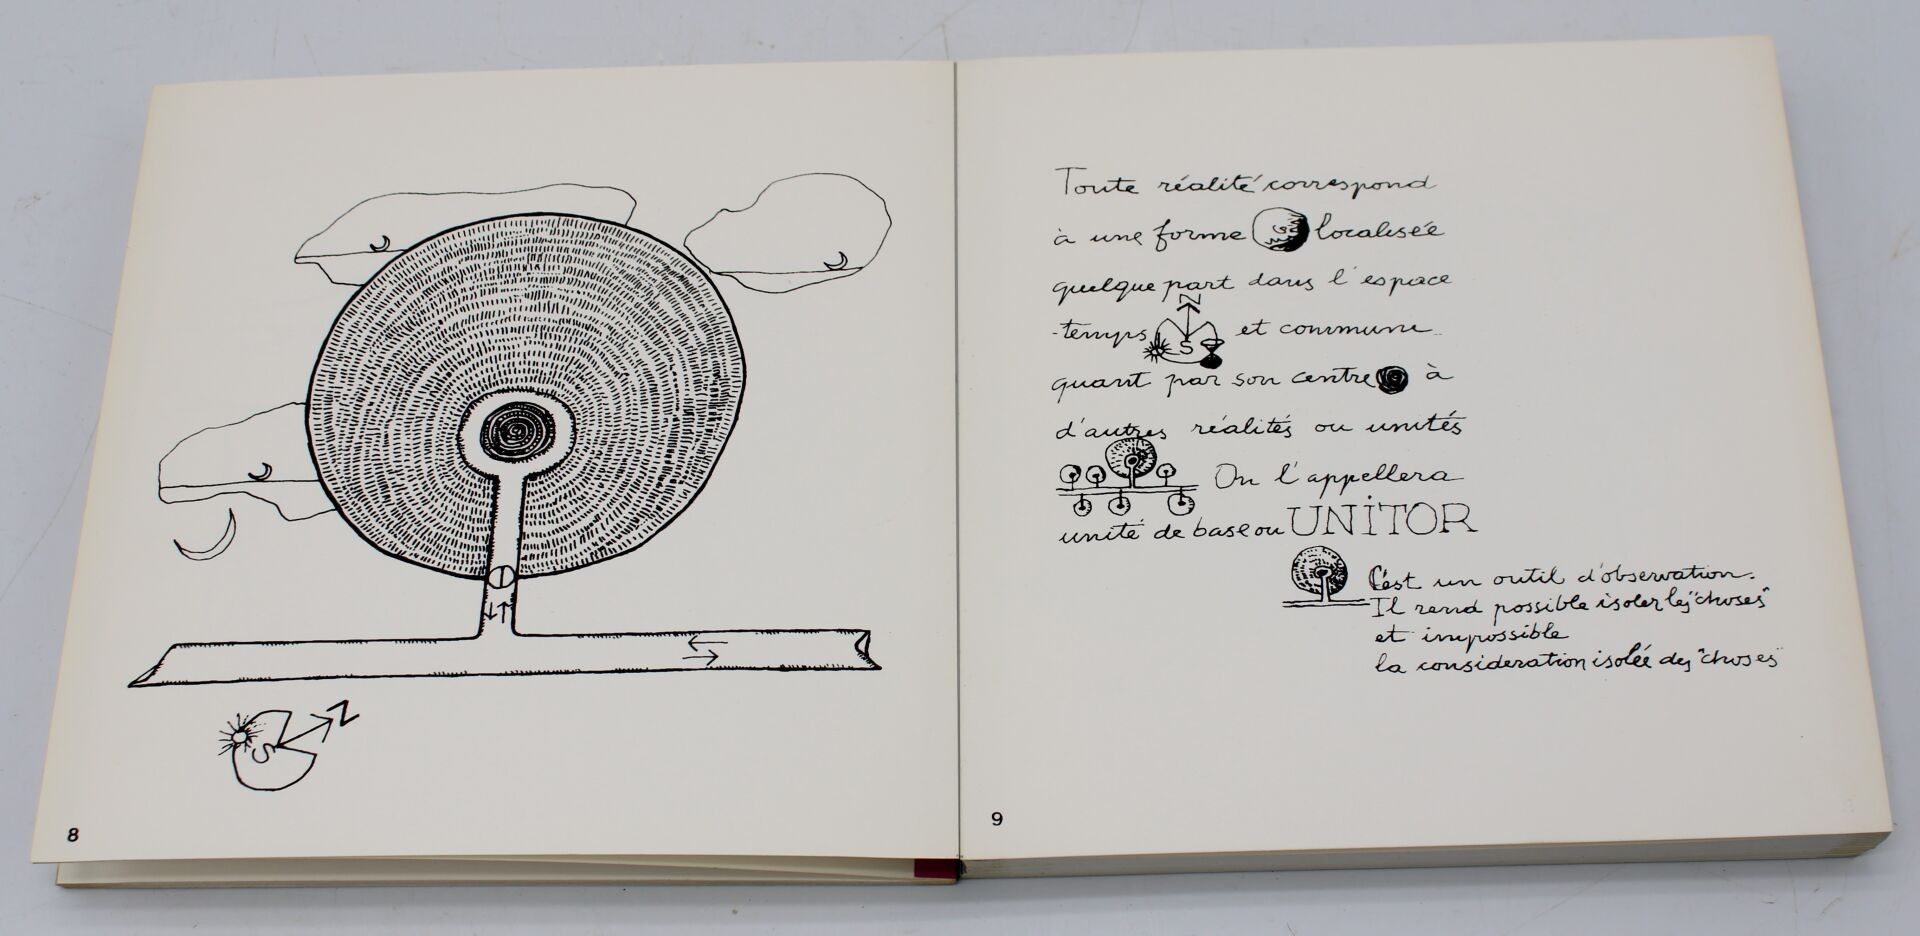 N
S
8
Toute réalité correspond
à une forme localisée
quelque part dans l'espace
N
-temps S et commune
quant par son centre à
d'autres réalités ou unités
On l'appellera
unité de base ou UNITOR
C'est un outil d'observation.
Il rend possible isoler les "choses"
et impossible
la consideration isolée des "choses"
9